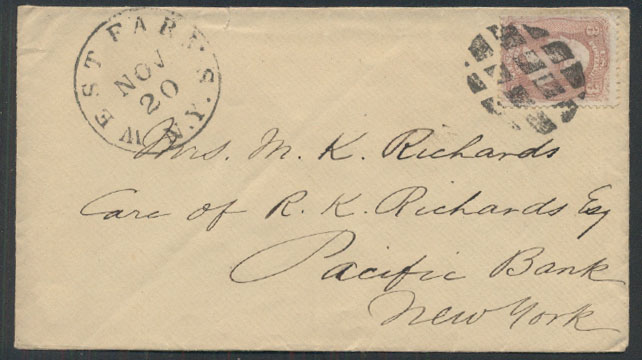 WEST FARMS. N.Y.
NOV
20
3 3
Mrs. M. K. Richards
Care of R. K. Richards Esq
Pacific Bank
New York